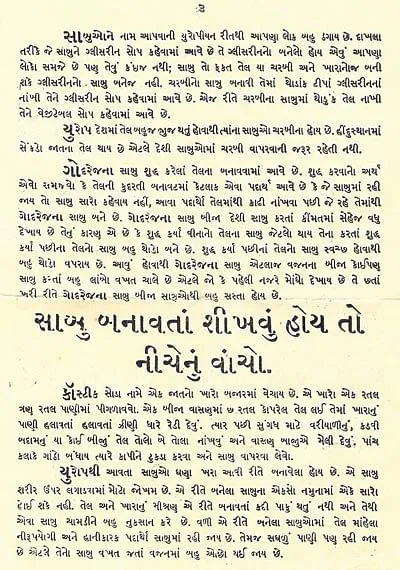 ૩
સાબુઓને નામ આપવાની યુરોપીયન રીતથી આપણા લોક બહુ ઠગાય છે. દાખલા
તરીકે જે સાબુને ગ્લીસરીન સોપ કહેવામાં આવે છે તે ગ્લીસરીનનો બનેલો હોય એવું આપણા
લોકો સમજે છે પણ તેવું કંઇજ નથી; સાબુ તો ફકત તેલ યા ચરબી અને ખારાનોજ બની
શકે ગ્લીસરીનનો સાબુ બનેજ નહી. ચરબીનો સાબુ બનાવી તેમાં થોડાંક ટીપાં ગ્લીસરીનનાં
નાંખી તેને ગ્લીસરીન સોપ કહેવામાં આવે છે. એજ રીતે ચરબીના સાબુમાં થોડુંક તેલ નાખી
તેને વેજીટેબલ સોપ કહેવામાં આવે છે.
યુરોપ દેશમાં તેલ બહુજ ભુજ થતું હોવાથી ત્યાંના સાબુઓ ચરબીના હોય છે. હીંદુસ્થાનમાં
સેંકડો જાતના તેલ થાય છે એટલે દેશી સાબુઓમાં ચરબી વાપરવાની જરૂર રહેતી નથી.
ગોદરેજના સાબુ શુદ્ધ કરેલાં તેલના બનાવવામાં આવે છે. શુદ્ધ કરવાનો અર્થ
એવો સમજવો કે તેલની કુદરતી બનાવટમાં કેટલાક એવા પદાર્થો આવે છે કે જે સાબુમાં રહી
જાય તો સાબુ સારો કહેવાય નહીં, આવા પદાર્થો તેલમાંથી કાઢી નાંખવા પછી જે રહે તેમાંથી
ગોદરેજના સાબુ બને છે. ગોદરેજના સાબુ બીજા દેશી સાબુ કરતાં કીંમતમાં સેહેજ વધુ
દેખાય છે તેનું કારણ એ છે કે શુદ્ધ કર્યા વીનાનો તેલનો સાબુ જેટલો થાય તેના કરતાં શુદ્ધ
કર્યા પછીના તેલનો સાબુ બહુ થોડો બને છે. શુદ્ધ કર્યા પછીનાં તેલનો સાબુ સ્વચ્છ હોવાથી
બહુ થોડો વપરાય છે. આવું હોવાથી ગોદરેજના સાબુ એટલાજ વજનના બીજા કોઈપણ
સાબુ કરતાં બહુ લાંબો વખત ચાલે છે એટલે જો કે પહેલી નજરે મોંઘો દેખાય છે તે છતાં
ખરી રીતે ગોદરેજના સાબુ બીજા સાબુઓથી બહુ સસ્તા હોય છે.
સાબુ બનાવતાં શીખવું હોય તો
નીચેનું વાંચો.
કૉસ્ટીક સોડા નામે એક જાતનો ખારો બજારમાં વેચાય છે. એ ખારો એક રતલ
ત્રણ રતલ પાણીમાં પીગળાવવો. એક બીજા વાસણમાં ૭ રતલ કોપરેલ તેલ લઈ તેમાં ખારાનું
પાણી હલાવતાં હલાવતાં ઝીણી ધારે રેડી દેવું. ત્યાર પછી સુગંધ માટે વરીયાળીનું, કડવી
બદામનું યા કોઈ બીજું તેલ તોલો બે તોલા નાંખવું અને વાસણ બાજુએ મેલી દેવું. પાંચ
કલાકે ગાંઠો બંધાય ત્યારે કાપીને ટુકડા કરવા અને સાબુ વાપરવા લેવો.
યુરોપથી આવતા સાબુઓ ઘણા ખરા આવી રીતે બનાવેલા હોય છે. એ સાબુ
શરીર ઉપર લગાડવામાં મોટો જોખમ છે. એ રીતે બનેલા સાબુના એકસો નમુનામાં એક સારો
હોઈ શકે નહી. તેલ અને ખારાનું મીશ્રણ એ રીતે બનાવતાં કદી પાકું થતું નથી અને તેથી
એવા સાબુ ચામડીને બહુ નુકસાન કરે છે. વળી એ રીતે બનેલા સાબુઓમાં તેલ માંહેલા
નીરૂપયોગી અને હાનીકારક પદાર્થો સાબુમાં રહી જાય છે. તેમજ સઘળું પાણી પણ રહી જાય
છે એટલે તેનો સાબુ વખત જતાં વજનમાં બહુ ઓછો થઈ જાય છે.